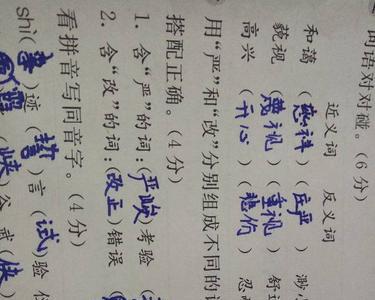 词语对对碰。(6分)
近义词 反义词
和蔼 (慈祥) (庄严) 渺小
藐视 (蔑视) (重视) 舒
高兴 (开心) (悲伤) 忍
用“严”和“改”分别组成不同的
搭配正确。(4分)
1. 含“严”的词:(严峻)考验
2. 含“改”的词:(改正)错误
看拼音写同音字。(4分)
shì( )迹 (誓)言 (试)验
(峡)谷 武(侠)